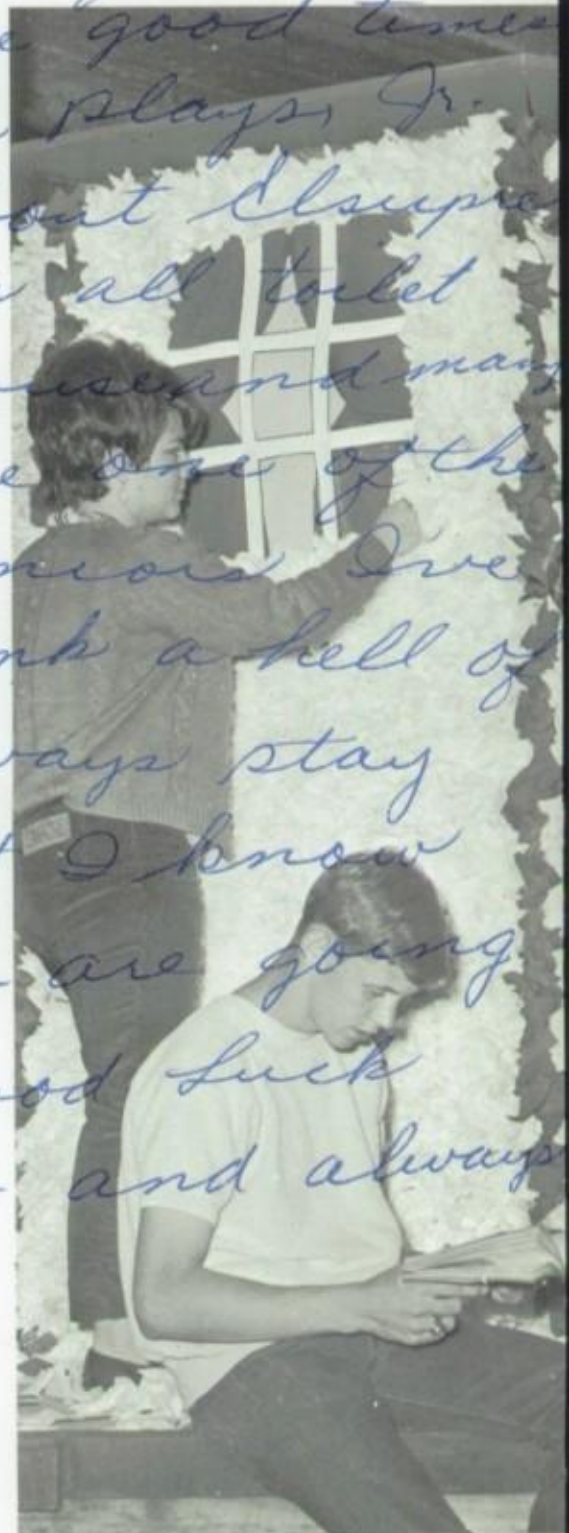 e good times
plays, Jr.
out Elsupre
all toilet
use and many
e one of the
niors I've
nk a hell of
ways stay
t I know
are going
od Luck
and always